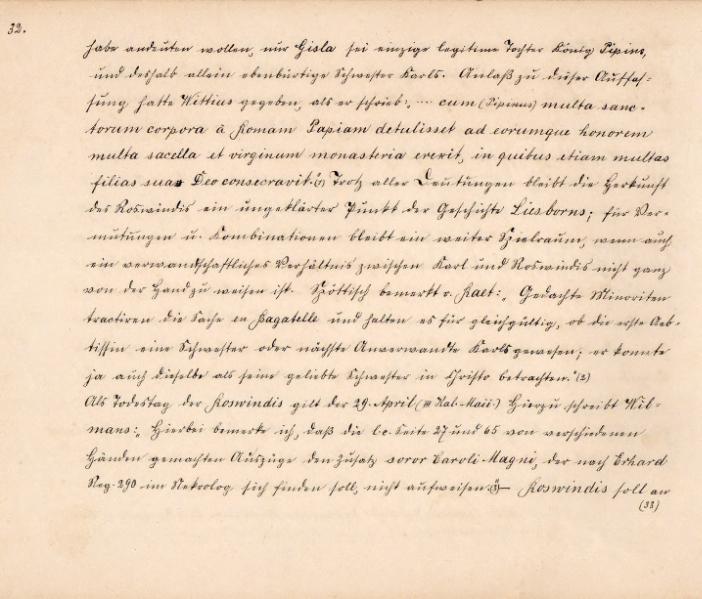 32.
habe andeuten wollen, nur Gisla sei einzige legitime Tochter König Pipins,
und deshalb allein ebenbürtige Schwester Karls. Anlaß zu dieser Auffas-
sung hatte Wittius gegeben, als er schrieb: „... cum (Pipinus) multa sanc-
torum corpora à Romam Papiam detulisset ad eorumque honorem
multa sacella et virginum monasteria erexit, in quibus etiam multas
filias suas Deo consecravit." (1) Trotz aller Deutungen bleibt die Herkunft
des Roswindis ein ungeklärter Punkt der Geschichte Liesborns; für Ver-
mutungen u. Kombinationen bleibt ein weiter Spielraum, wenn auch
ein verwandschaftliches Verhältnis zwischen Karl und Roswindis nicht ganz
von der Hand zu weisen ist. Spöttisch bemerkt v. Raet: „Gedachte Minoriten
tractiren die Sache en Bagatelle und halten es für gleichgültig, ob die erste Aeb-
tissin eine Schwester oder nächste Anverwandte Karls gewesen; er konnte
ja auch dieselbe als seine geliebte Schwester in Christo betrachten." (2)
Als Todestag der Roswindis gilt der 29. April (III Kal. Maii.) Hierzu schreibt Wil-
mans: „Hierbei bemerke ich, daß die l. c. Seite 27 und 65 von verschiedenen
Händen gemachten Auszüge den Zusatz soror Caroli Magni, der nach Erhard
Reg. 290 im Nekrolog sich finden soll, nicht aufweisen." (3) — Roswindis soll an
(33)